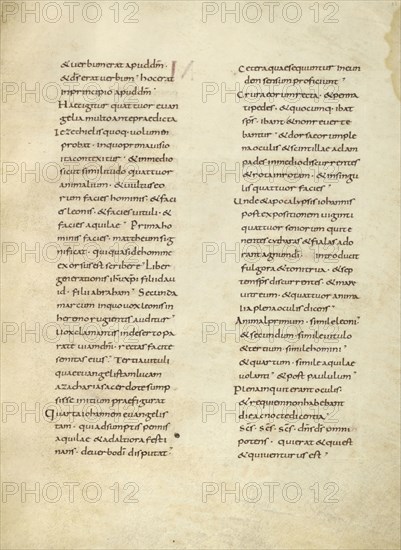 & uerbum erat apud dm̄·
& ds̄ erat uerbum· hoc erat
in principio apud dm̄·
Haec igitur quattuor euan
gelia multo ante praedicta
Iezechielis quoq· uolumen
probat· in quo prima uisio
ita contexitur· & in medio
sicut similitudo quattuor
animalium· & uultus eo
rum facies hominis· & faci
es leonis· & facies uituli· &
facies aquilae· Prima ho
minis facies· mattheum sig
nificat· qui quasi de homine
exorsus est scribere· Liber
generationis ihū xp̄i filii dau
id· filii abraham· Secunda
marcum in quo uox leonis in
heremo rugientis auditur·
Uox clamantis in deserto pa
rate uiam dn̄i· rectas facite
semitas eius· Tertia uituli
quae euangelistam lucam
a zacharia sacerdote sump
sisse initium praefigurat
Quarta iohannem euangelis
tam· qui adsumptis pennis
aquilae & ad altiora festi
nans· de uerbo dī disputat·
Cetera quae sequuntur in eun
dem sensum proficiunt·
Crura eorum recta· & penna
ti pedes· & quocumq· ibat
sp̄s· ibant & non reuerte
bantur· & dorsa eorum ple
na oculis· & scintillae ac lam
pades in medio discurrentes
& rota in rota· & in singu
lis quattuor facies·
Unde & apocalypsis iohannis
post expositionem uiginti
quattuor seniorum qui te
nentes cytharas & fialas ado
rant agnum dī· introducit
fulgora & tonitrua· & sep
tem sp̄s discurrentes· & mare
uitreum· & quattuor anima
lia plena oculis dicens·
Animal primum· simile leoni·
& secundum· simile uitulo
& tertium· simile homini·
& quartum· simile aquilae
uolanti· & post paululum·
Plena inquit erant oculis·
& requiem non habebant
die ac nocte dicentia·
Sc̄s· Sc̄s· Sc̄s· dn̄s ds̄ omni
potens· qui erat & qui est
& qui uenturus est·
PHOTO12